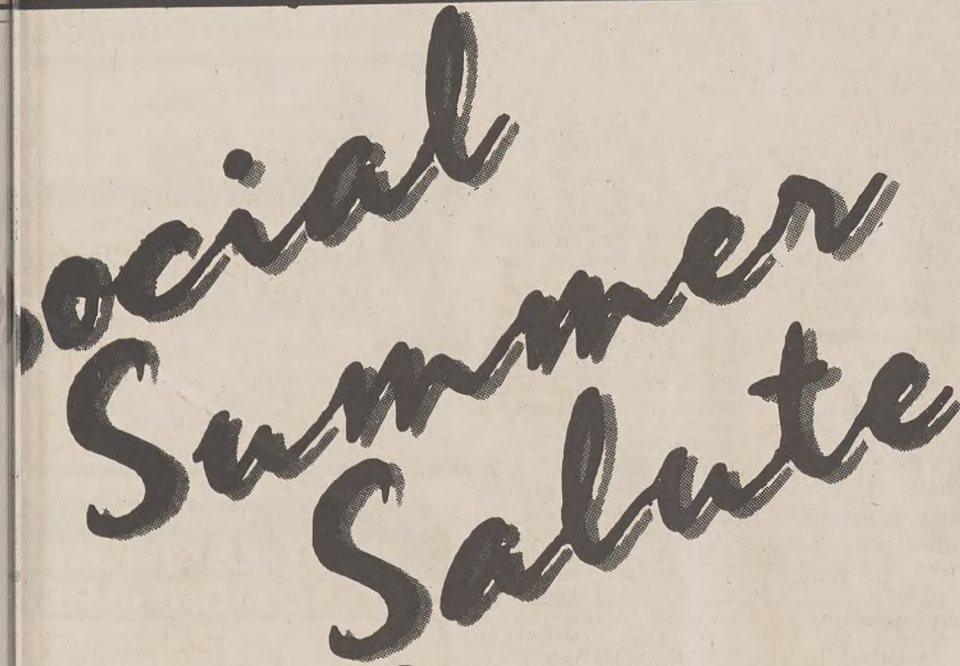 ocial
Summer
Salute